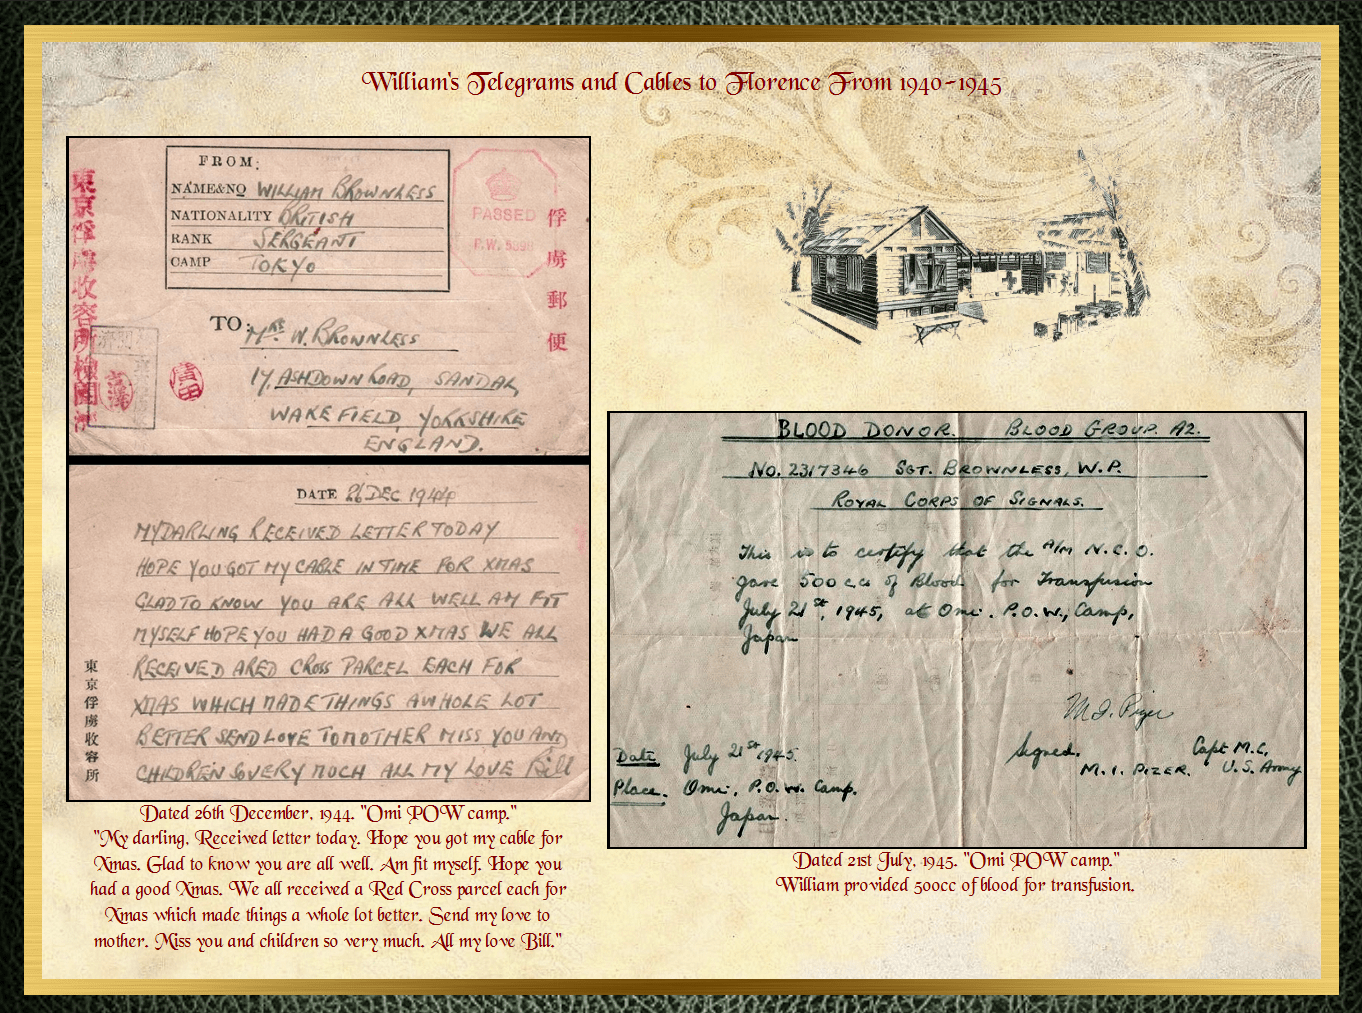 William's Telegrams and Cables to Florence From 1940-1945
FROM:
NAME&NO WILLIAM BROWNLESS
NATIONALITY BRITISH
RANK SERGEANT
CAMP TOKYO
PASSED
P.W. 5898
俘虜郵便
東京俘虜収容所検閲済
TO: MRS W. BROWNLESS
17, ASHDOWN ROAD, SANDAL,
WAKEFIELD, YORKSHIRE
ENGLAND.
DATE 26 DEC 1944
MY DARLING RECEIVED LETTER TODAY
HOPE YOU GOT MY CABLE IN TIME FOR XMAS
GLAD TO KNOW YOU ARE ALL WELL AM FIT
MYSELF HOPE YOU HAD A GOOD XMAS WE ALL
RECEIVED A RED CROSS PARCEL EACH FOR
XMAS WHICH MADE THINGS A WHOLE LOT
BETTER SEND LOVE TO MOTHER MISS YOU AND
CHILDREN SO VERY MUCH ALL MY LOVE Bill
東京俘虜収容所
Dated 26th December, 1944. "Omi POW camp."
"My darling. Received letter today. Hope you got my cable for
Xmas. Glad to know you are all well. Am fit myself. Hope you
had a good Xmas. We all received a Red Cross parcel each for
Xmas which made things a whole lot better. Send my love to
mother. Miss you and children so very much. All my love Bill."
BLOOD DONOR. BLOOD GROUP. A2.
NO. 2317346 SGT. BROWNLESS, W.P.
ROYAL CORPS OF SIGNALS.
This is to certify that the A/M N.C.O.
gave 500 c.cs of Blood for Transfusion
July 21st, 1945, at Omi. P.O.W., Camp,
Japan
M. I. Pizer
Signed. Capt M.C.
M. I. PIZER. U.S. Army
Date July 21st 1945.
Place. Omi, P.O.W. Camp.
Japan.
Dated 21st July, 1945. "Omi POW camp."
William provided 500cc of blood for transfusion.